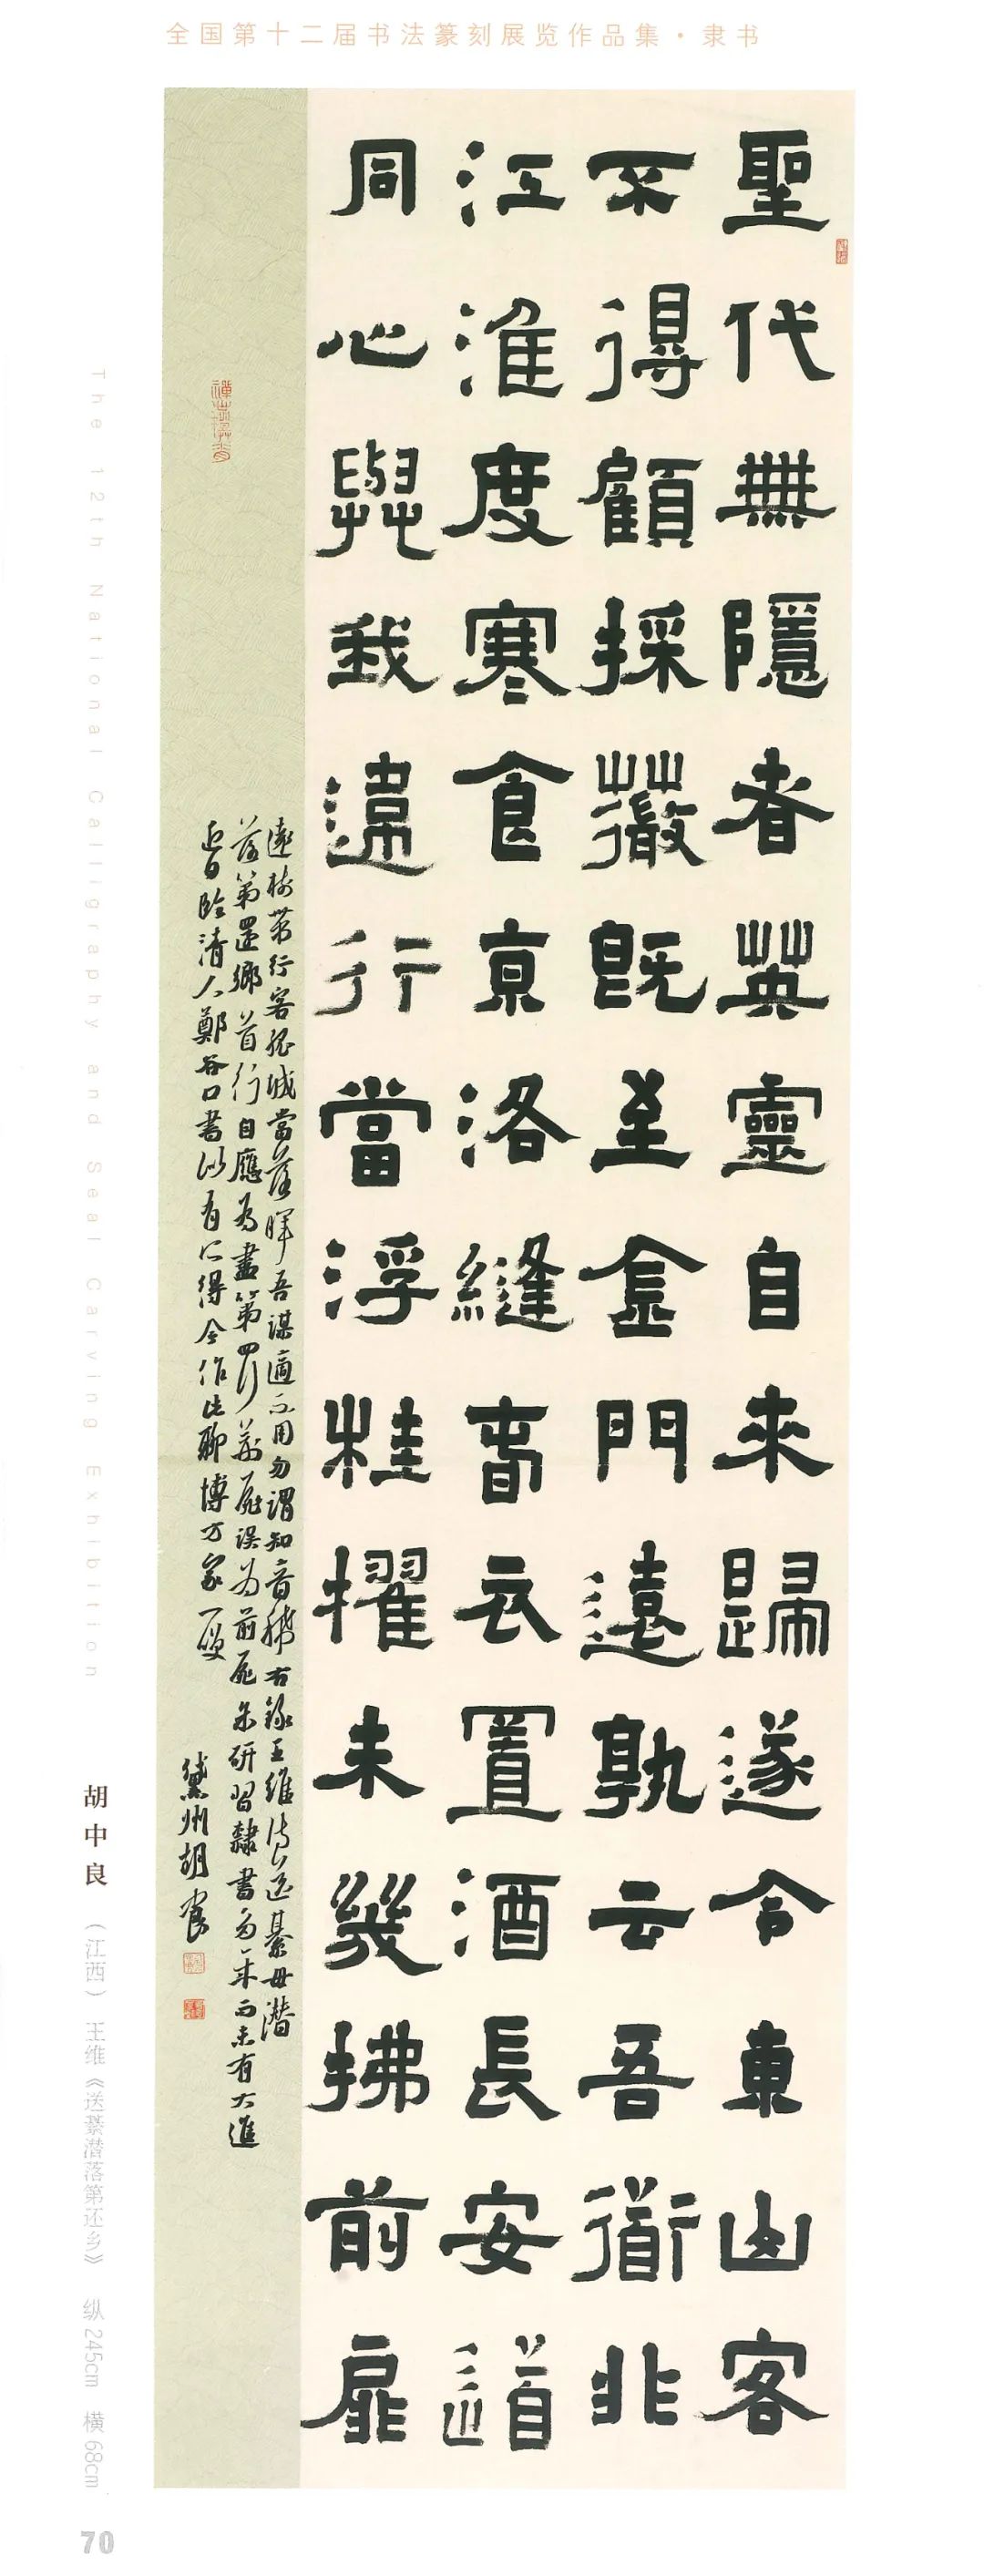 全国第十二届书法篆刻展览作品集·隶书
聖代無隱者英靈自来歸遂令東山客
不得顧採薇既至金門遠孰云吾衟非
江淮度寒食京洛縫春衣置酒長安道
同心與我違行當浮桂擢未幾拂前扉
遠樹帶行客孤城當落暉吾謀適不用勿謂知音稀右錄王維詩送綦毋潜
落第還鄉首行自應為盡第四行荊扉误為前扉余研習隸書多年而未有大進
近日臨清人鄭谷口書似有所得今作此聊博方家一哂
州胡中良
The 12th National Calligraphy and Seal Carving Exhibition
胡中良 （江西） 王维《送綦潜落第还乡》 纵245cm 横68cm
70